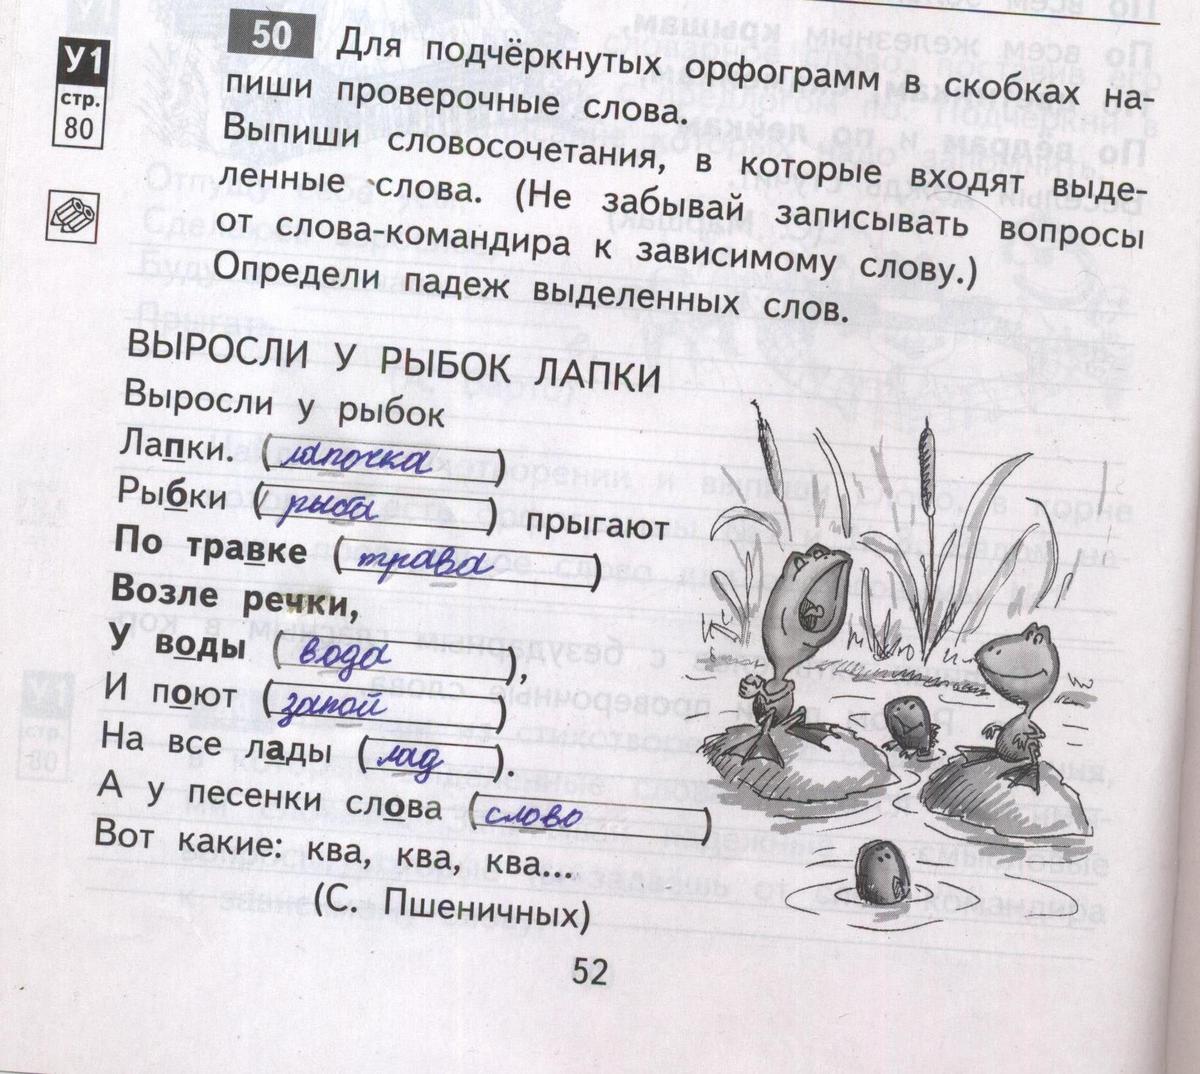 50 Для подчёркнутых орфограмм в скобках на-
У1
стр.
80
пиши проверочные слова.
Выпиши словосочетания, в которые входят выде-
ленные слова. (Не забывай записывать вопросы
от слова-командира к зависимому слову.)
Определи падеж выделенных слов.
ВЫРОСЛИ У РЫБОК ЛАПКИ
Выросли у рыбок
Лапки. (лапочка)
Рыбки (рыба) прыгают
По травке (трава)
Возле речки,
У воды (вода),
И поют (запой)
На все лады (лад).
А у песенки слова (слово)
Вот какие: ква, ква, ква...
(С. Пшеничных)
52